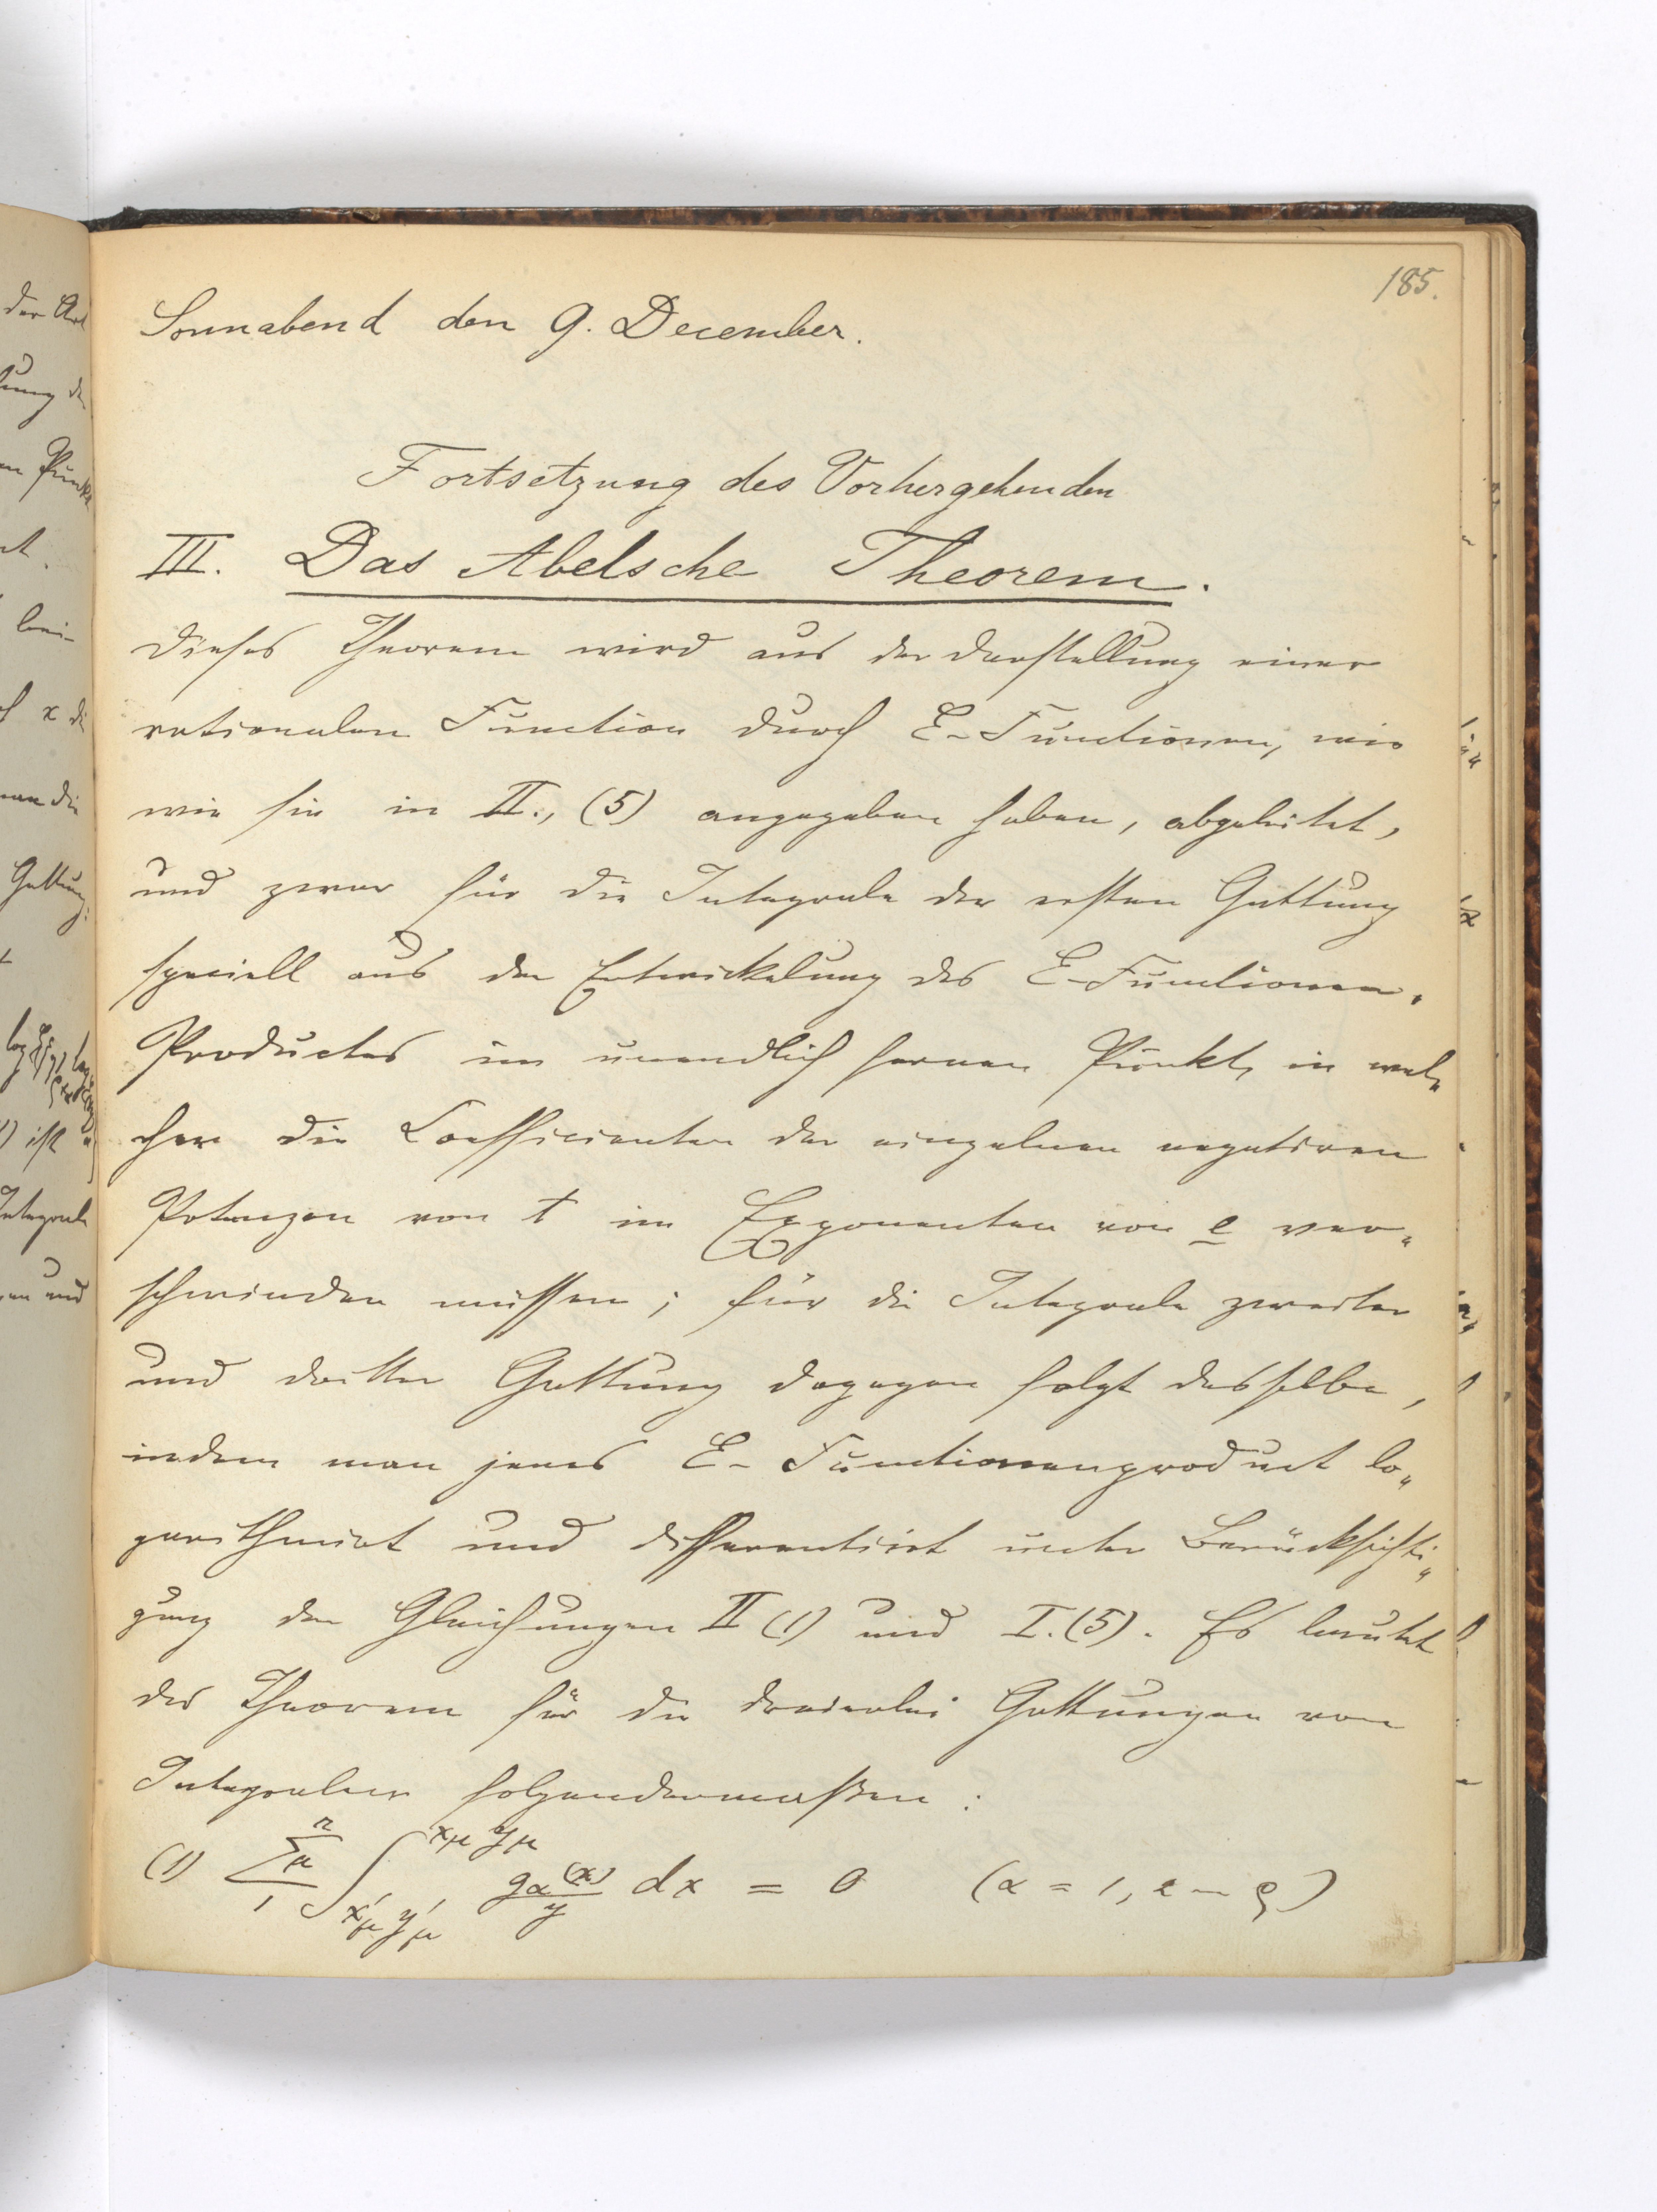 185.
Sonnabend den 9. December.
Fortsetzung des Vorhergehenden
III. Das Abelsche Theorem.
Dieses Theorem wird aus der Darstellung einer
rationalen Function durch E-Functionen, wie
wir sie in II., (5) angegeben haben, abgeleitet,
und zwar für die Integrale der ersten Gattung
speciell aus der Entwickelung des E-Functionen-
Productes im unendlich fernen Punkt, in wel-
cher die Coefficienten der einzelnen negativen
Potenzen von t im Exponenten von e ver-
schwinden müssen; für die Integrale zweiter
und dritter Gattung dagegen folgt dasselbe,
indem man jenes E-Functionenproduct lo-
garithmirt und differentiirt unter Berücksichti-
gung der Gleichungen II (1) und I. (5). Es lautet
das Theorem für die dreierlei Gattungen von
Integralen folgendermaßen:
(1) \sum_{1}^{n}{}_{\mu} \int_{x'_\mu y'_\mu}^{x_\mu y_\mu} \frac{g_\alpha(x)}{y} dx = 0 (α = 1, 2 – ϱ)
der Art
Punkt
bei-
x die
man die
Gattung:
ist
Integrale
und